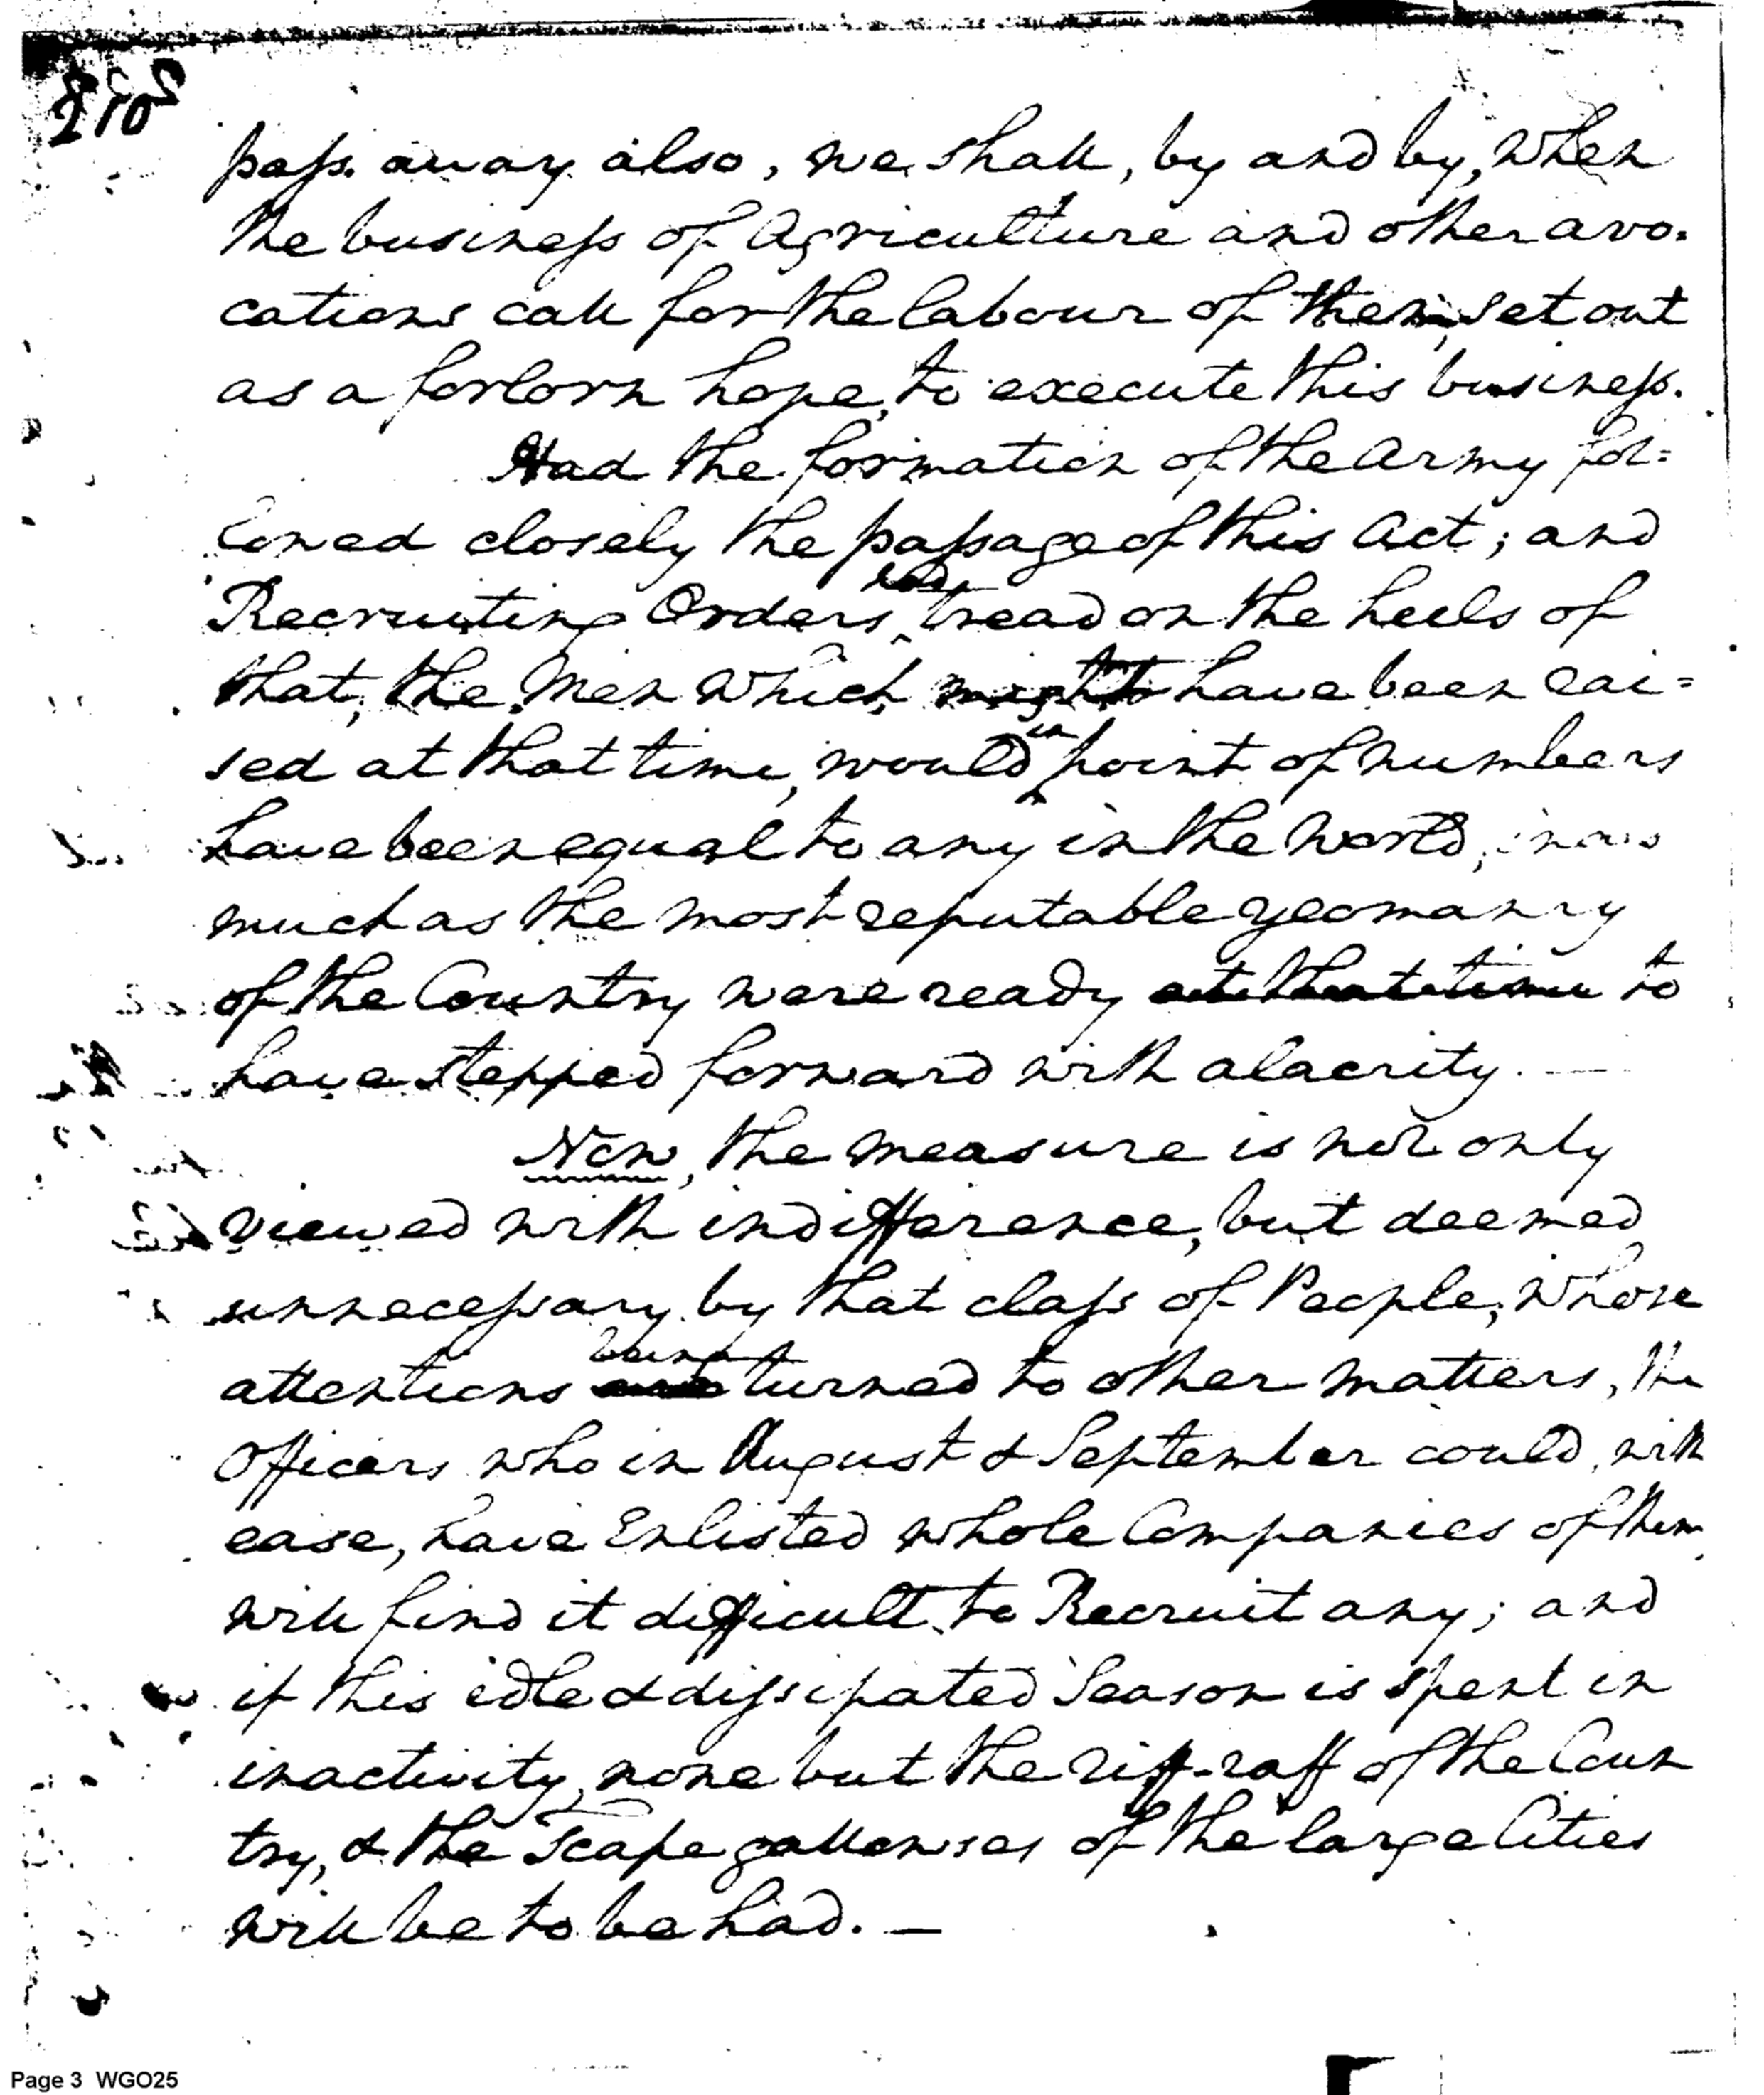 pass away also, we shall, by and by, when
the business of Agriculture and other avo-
cations call for the labour of them, set out
as a forlorn hope, to execute this business.
Had the formation of the Army fol=
lowed closely the passage of this Act; and
Recruiting Orders had tread on the heels of
that, the Men which might have been rai=
sed at that time, would in point of numbers
have been equal to any in the world, inas
much as the most reputable yeomanry
of the Country were ready at that time to
have stepped forward with alacrity. —
Now, the measure is not only
viewed with indifference, but deemed
unnecessary by that class of People, whose
attentions being turned to other matters, the
Officers who in August & September could, with
ease, have Enlisted whole Companies of them,
will find it difficult to Recruit any; and
if this idle & dissipated Season is spent in
inactivity, none but the riff-raff of the Coun
try, & the Scape gallowses of the large Cities
will be to be had. —
Page 3 WGO25